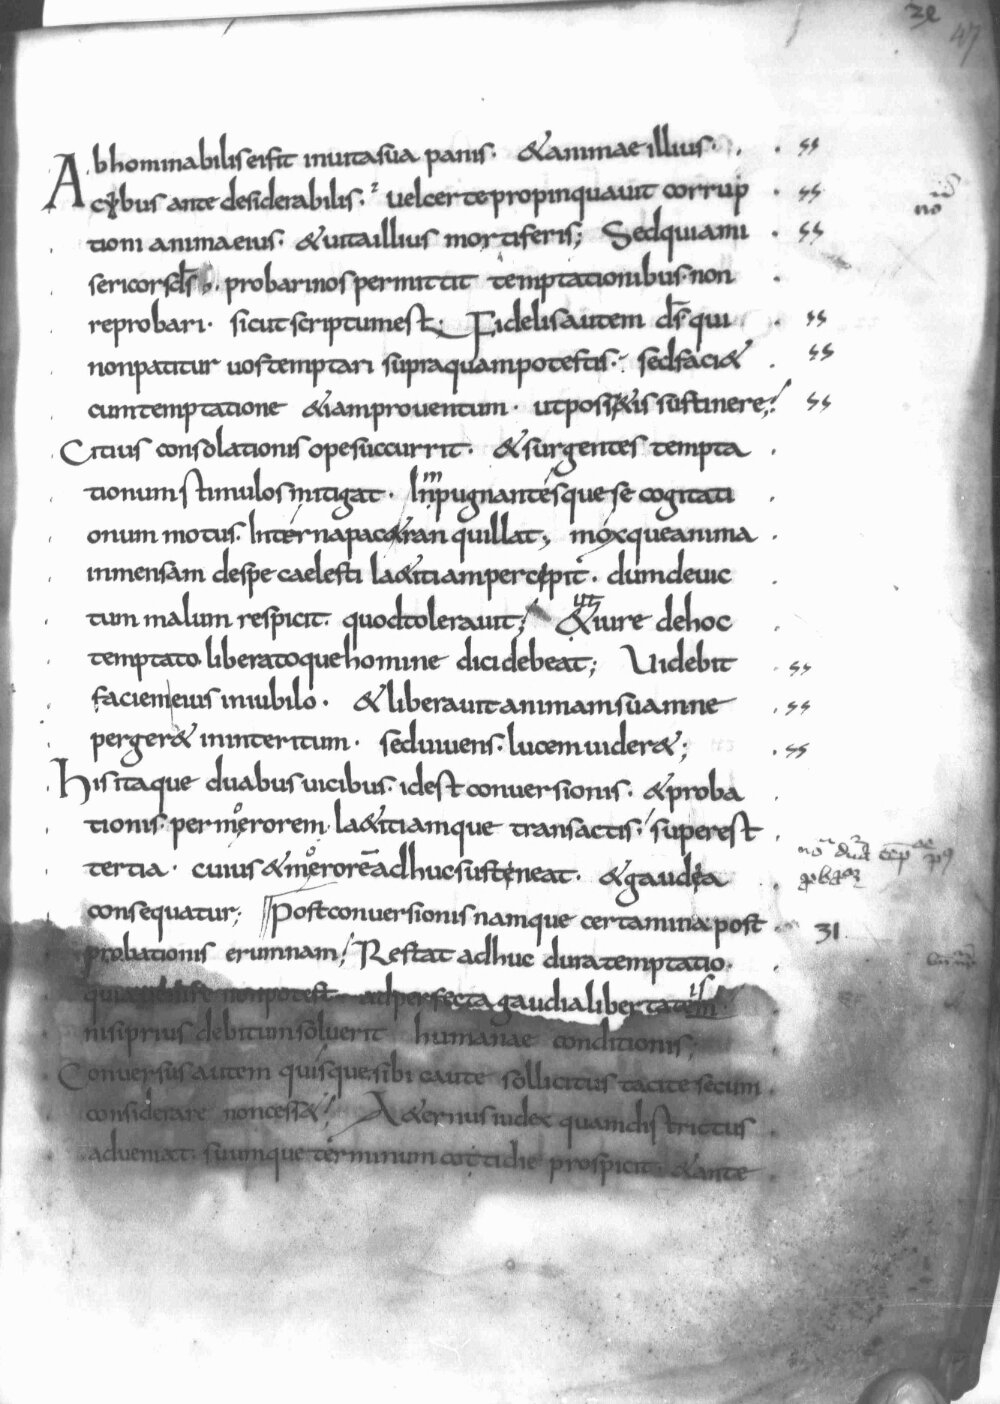 32
47
Abhominabilis ei fit inuita sua panis. & animae illius.
cybus ante desiderabilis. uel certe propinquauit corrup
tioni anima eius. & uita illius mortiferis; Sed quia mi
sericors ds probari nos permittit temptationibus. non
reprobari. sicut scriptum est. Fidelis autem ds qui
non patitur uos temptari supra quam potestis. sed faci&
cum temptatione &iam prouentum. ut possitis sustinere;
Citius consolationis ope succurrit. & surgentes tempta
tionum stimulos mitigat. Inpugnantesque se cogitati
onum motus. Interna pace tranquillat; moxque anima
inmensam de spe caelesti la&itiam percipit. dum deuic
tum malum respicit. quod tolerauit; & iure de hoc
temptato liberatoque homine dici debeat; Uidebit
faciem eius in iubilo. & liberauit animam suam ne
perger& in interitum. sed uiuens. lucem uider&;
His itaque duabus uicibus. id est conuersionis. & proba
tionis. per merorem. la&itiamque transactis. superest
tertia. cuius & merorem adhuc susteneat. & gaudia
consequatur; Post conuersionis namque certamina post
31
probationis erumnam; Restat adhuc dura temptatio.
quia uenire non potest ad perfecta gaudia libertatis
nisi prius debitum soluerit humanae conditionis;
Conuersus autem quisque sibi caute sollicitus tacite secum
considerare non cess&; A&ernus iudex quam districtus
adueniat. suumque terminum cottidie prospicit. & ante